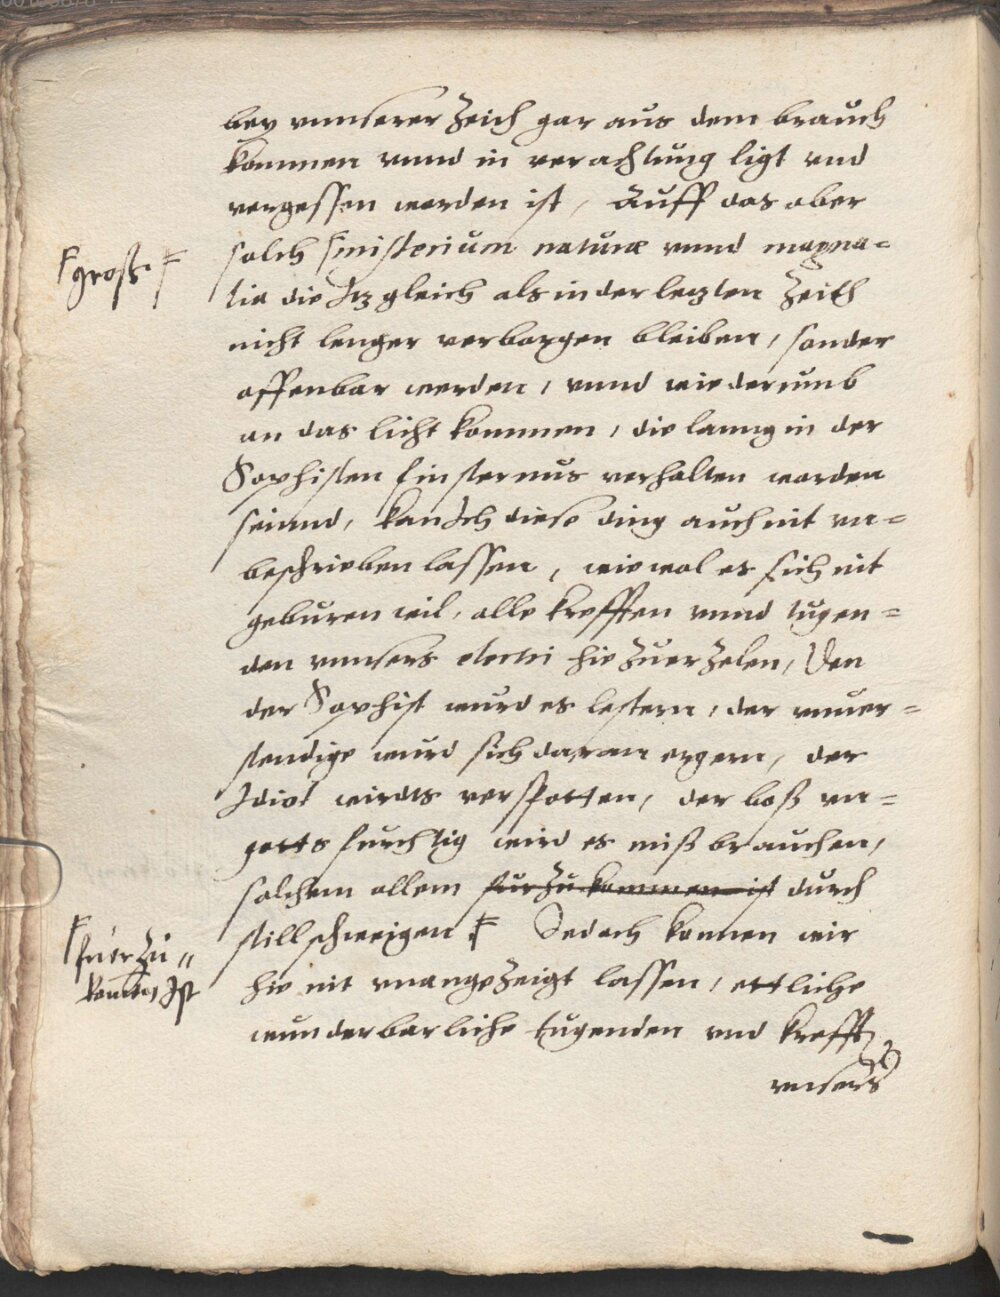 bey vnnserer Zeich gar aus dem brauch
kommen vnnd in verachtung ligt vnd
vergessen worden ist, Auff das aber
solch ⸢misterium naturæ vnnd magna=
⸢groß
lia die Itz gleich als in der letzten Zeith
nicht lenger verborgen bleiben, sonder
offenbar werden, vnnd wiederumb
an das licht kommen, die lanng in der
Sophisten finsternus verhalten worden
seinnd, kan Ich diese ding auch nit vn=
beschrieben lassen, wie wol es sich nit
geburen wil, alle krefften vnnd tugen=
den vnnsers electri hie Zu er Zelen, Den
der Sophist wurd es lestern, der vnuer=
stendige wurd sich daran ergern, der
Idiot wirdts verspotten, der boß vn=
gotts furchtig wird es mißbrauchen,
solchem allem fur Zu kommen ist durch
still schweigen Jedoch konnen wir
⸢fürZu"
komen Ist
hie nit vnangeZeigt lassen, ettliche
wunderbarliche tugenden vnd krefft
vnsers